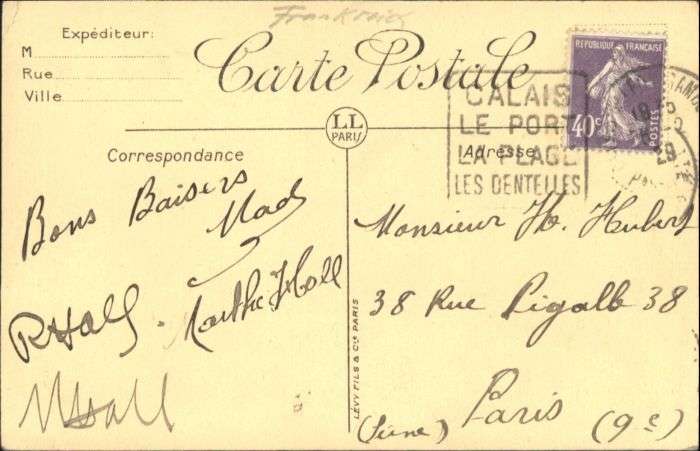 Frankreich
Expéditeur:
M
Rue
Ville
Carte Postale
CALAIS
LE PORT
LA PLAGE
LES DENTELLES
REPUBLIQUE FRANÇAISE
40c
POSTES
29
LL
PARIS
Correspondance
Adresse
Bons Baisers
Mad
RHall
Marthe Hall
MHall
LÉVY FILS & Cie PARIS
Monsieur H. Hubert
38 Rue Pigalle 38
Paris
(Seine) (9e)